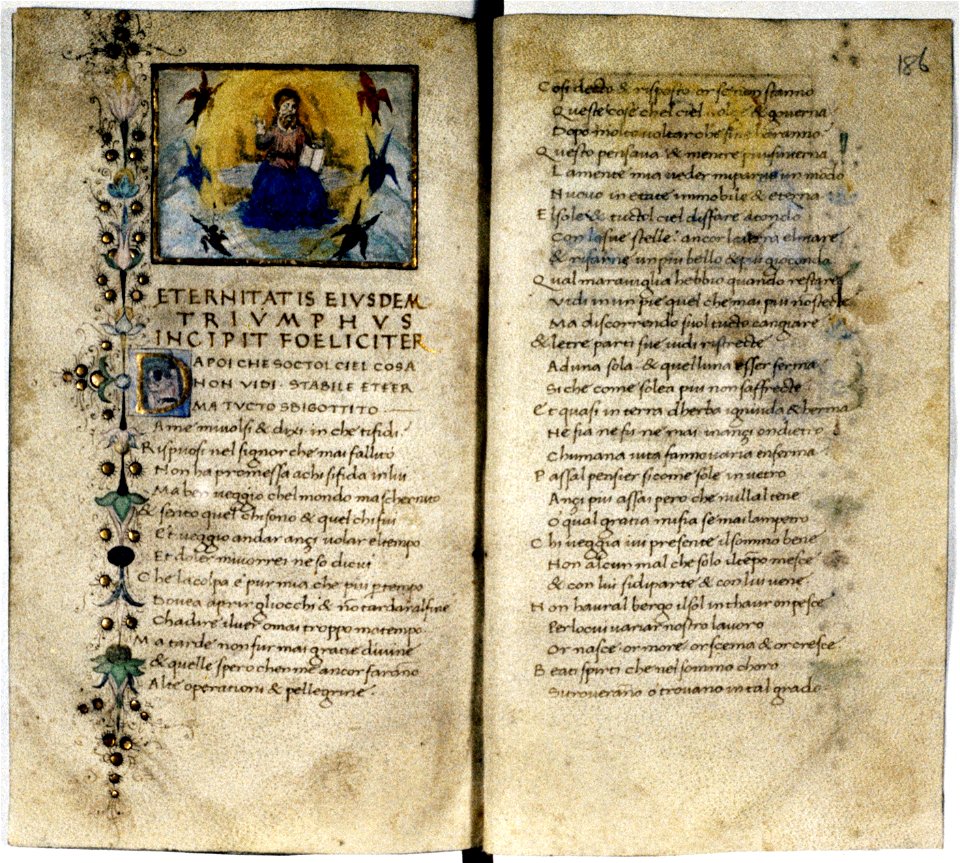 ETERNITATIS EIVSDEM
TRIVMPHVS
INCIPIT FOELICITER
DAPOI CHE SOCTOL CIEL COSA
NON VIDI STABILE ET FER
MA TVCTO SBIGOTTITO
A me mivolsi & dixi in che tifidi
Rispuosi nel signor che mai fallito
Non ha promessa achi sifida in lui
Ma ben veggio chel mondo ma schernito
& sento quel chi sono & quel chi fui
Et veggio andar anzi volar el tempo
Et doler mi vorrei ne so di cui
Che la colpa e pur mia che piu per tempo
Dovea aprir gliocchi & no tardar alfine
Chadire il ver omai troppo matempo
Ma tarde non fur mai gratie divine
& quelle spero chen me ancor farano
Alte operationi & pellegrine
186
Cosi decto & risposto or se non stanno
Queste cose chel ciel volge & governa
Dopo molto voltar che fine haranno
Questo pensava & mentre piu sinterna
La mente mia veder mi parve un modo
Nuovo in etate immobile & eterna
El sole & tuctol ciel disfare atondo
Con le sue stelle ancor la terra el mare
& rifarne un piu bello & piu giocondo
Qual maraviglia hebbio quando restare
Vidi in un pie quel che mai piu no stecte
Ma discorrendo suol tucto cangiare
& le tre parti sue vidi ristrecte
Ad una sola & quelluna esser ferma
Si che come solea piu non saffrecte
Et quasi in terra dherba ignuda & herma
Ne fia ne fu ne mai inanzi ondietro
Chumana vita fanno varia enferma
Passal pensier si come sole in vetro
Anzi piu assai pero che nulla l tene
O qual gratia mi fia se mai lampetro
Chi veggia ivi presente il sommo bene
Non alcun mal che solo il tepo mesce
& con lui si diparte & con lui vene
Non havra l bergo il sol in thauro on pesce
Per lo cui variar nostro lavoro
Or nasce or more or scema & or cresce
Beati spirti che nel sommo choro
Si troverano o trovano in tal grado